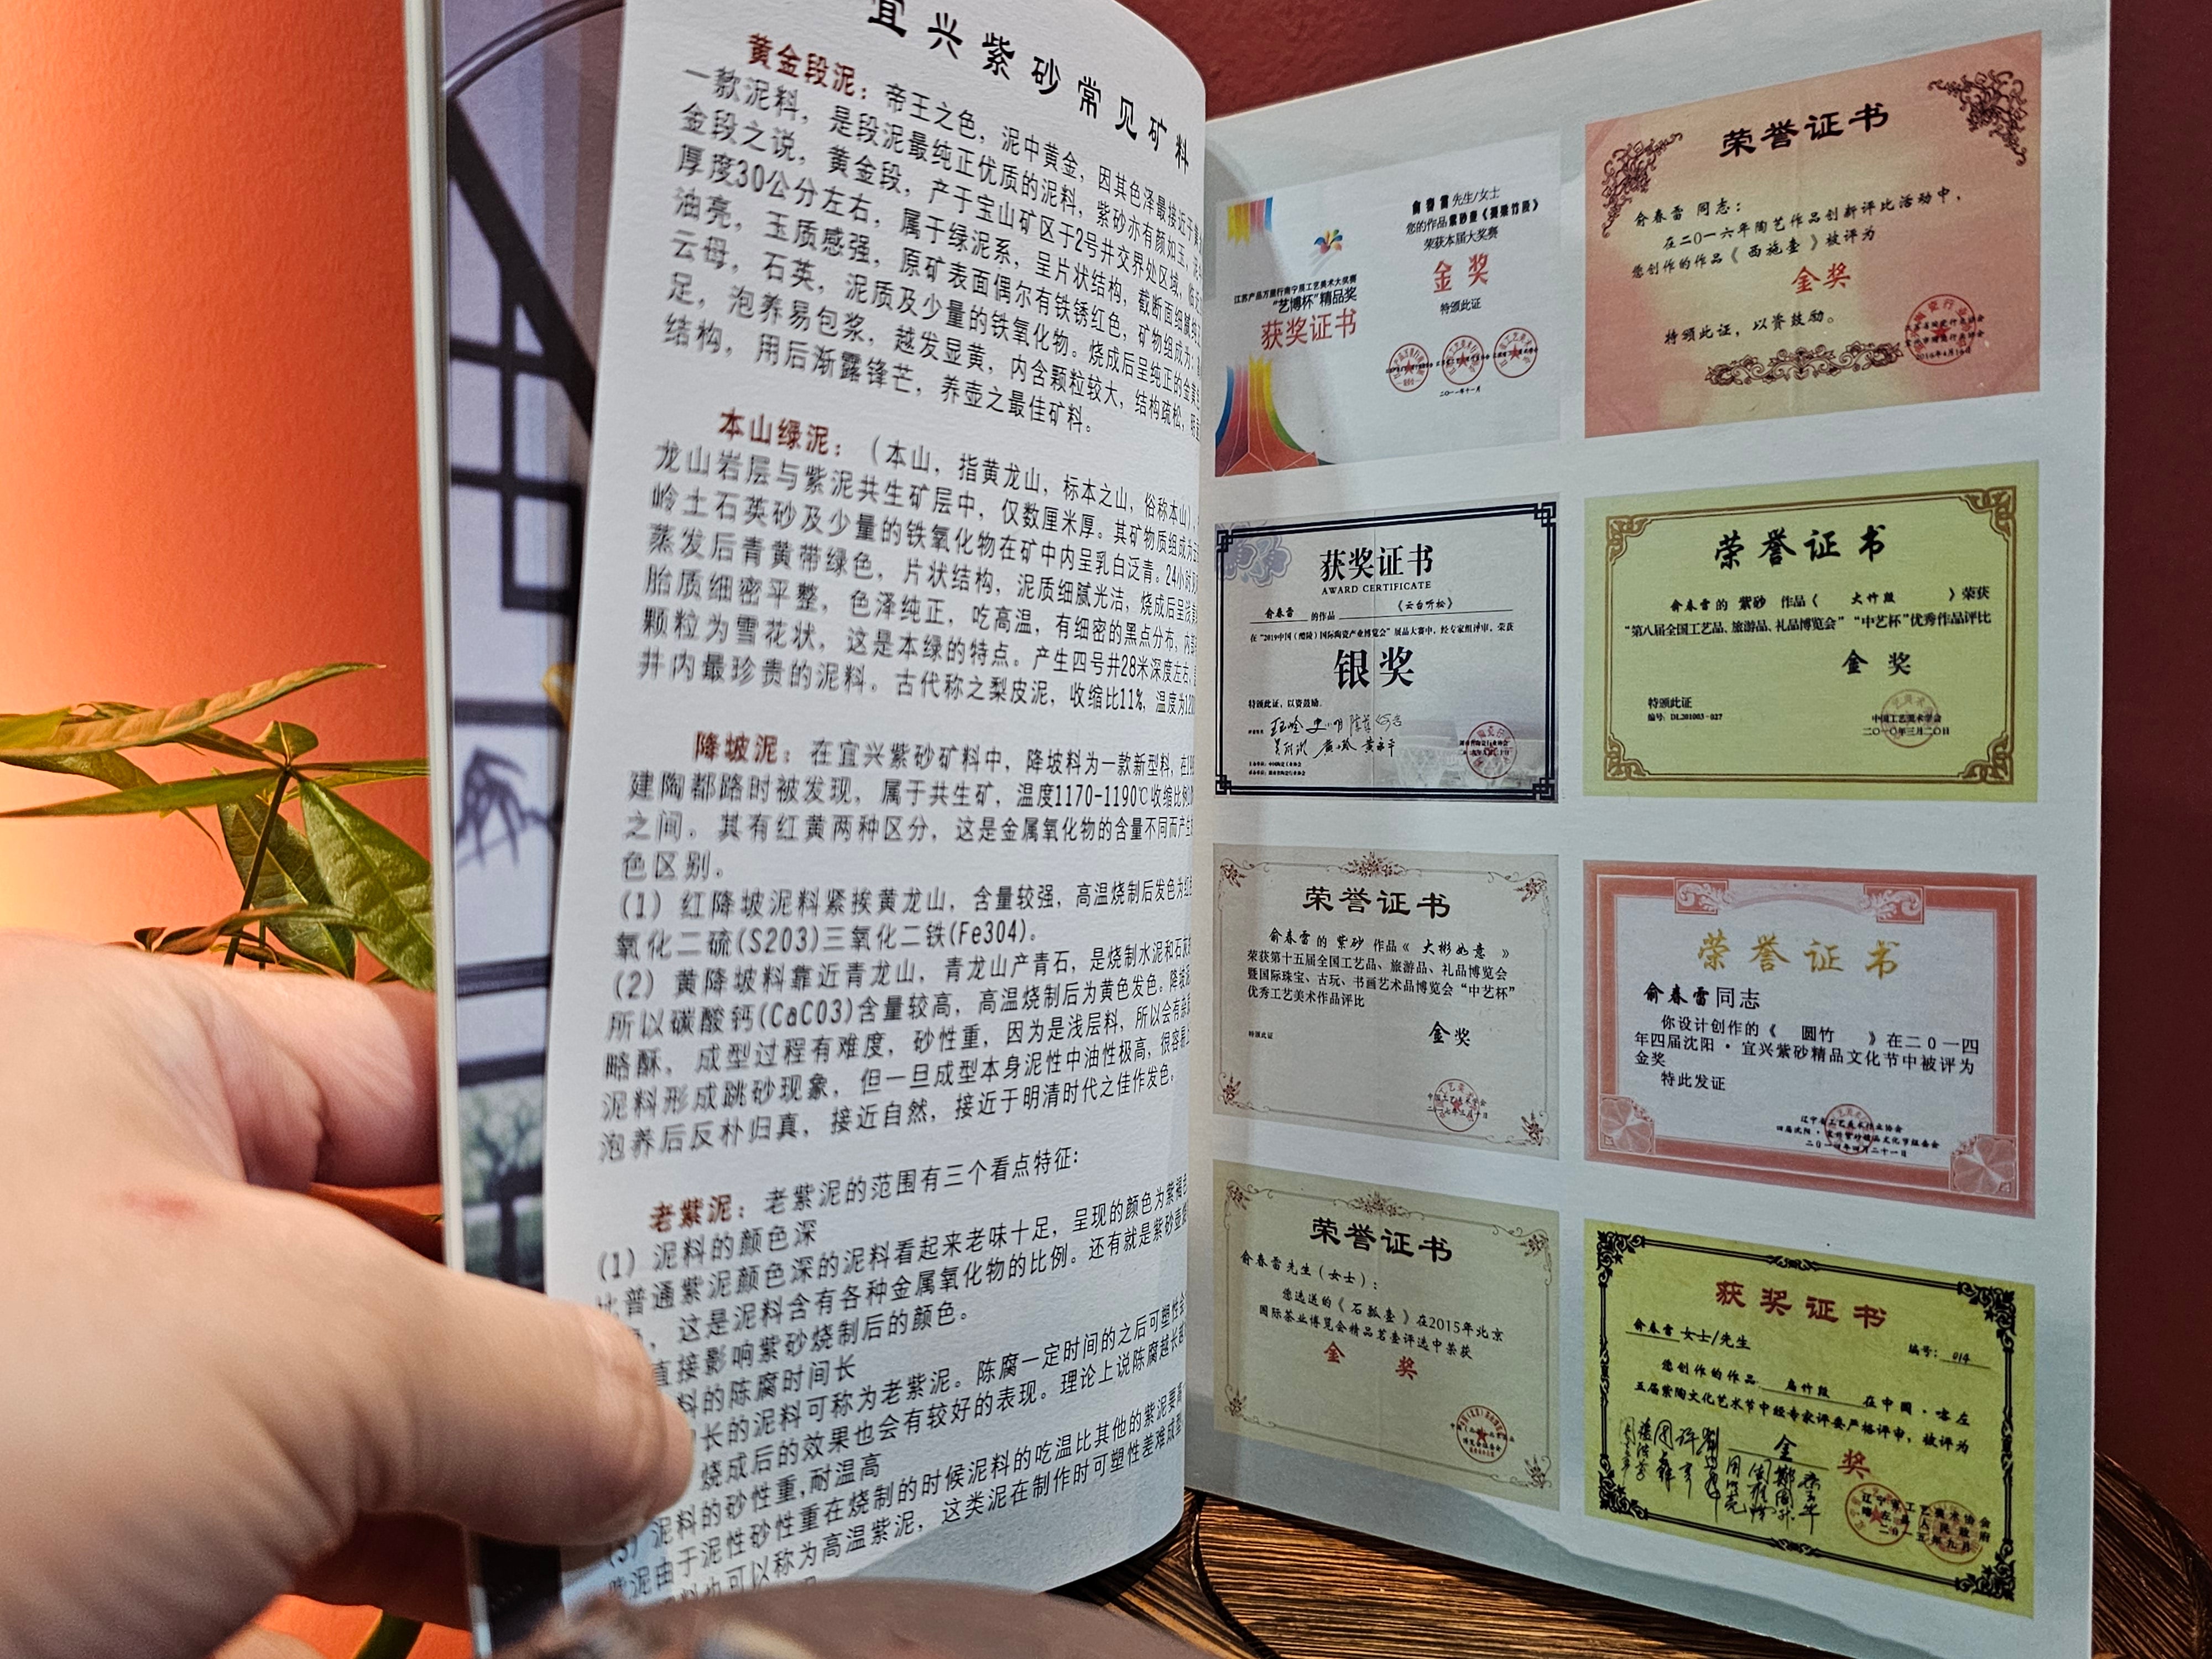 宜兴紫砂常见矿料
黄金段泥：帝王之色，泥中黄金，因其色泽最接近于黄
一款泥料，是段泥最纯正优质的泥料，紫砂亦有颜如玉，泥
金段之说，黄金段，产于宝山矿区于2号井交界处区域，临
厚度30公分左右，属于绿泥系，呈片状结构，截断面细腻
油亮，玉质感强，原矿表面偶尔有铁锈红色，矿物组成为：
云母，石英，泥质及少量的铁氧化物。烧成后呈纯正的金黄色
足，泡养易包浆，越发显黄，内含颗粒较大，结构疏松，
结构，用后渐露锋芒，养壶之最佳矿料。
本山绿泥：（本山，指黄龙山，标本之山，俗称本山）
龙山岩层与紫泥共生矿层中，仅数厘米厚。其矿物质组成为
岭土石英砂及少量的铁氧化物在矿中内呈乳白泛青。24小时
蒸发后青黄带绿色，片状结构，泥质细腻光洁，烧成后呈浅
胎质细密平整，色泽纯正，吃高温，有细密的黑点分布，内
颗粒为雪花状，这是本绿的特点。产生四号井28米深度左右，
井内最珍贵的泥料。古代称之梨皮泥，收缩比11%，温度为
降坡泥：在宜兴紫砂矿料中，降坡料为一款新型料，在
建陶都路时被发现，属于共生矿，温度1170-1190℃收缩比例
之间，其有红黄两种区分，这是金属氧化物的含量不同而产生
色区别。
(1) 红降坡泥料紧挨黄龙山，含量较强，高温烧制后发色为红
氧化二硫(S2O3)三氧化二铁(Fe3O4)。
(2) 黄降坡料靠近青龙山，青龙山产青石，是烧制水泥和石灰
所以碳酸钙(CaCO3)含量较高，高温烧制后为黄色发色。降坡泥
略酥，成型过程有难度，砂性重，因为是浅层料，所以会有杂
泥料形成跳砂现象，但一旦成型本身泥性中油性极高，很容易
泡养后反朴归真，接近自然，接近于明清时代之佳作发色。
老紫泥：老紫泥的范围有三个看点特征：
(1) 泥料的颜色深
比普通紫泥颜色深的泥料看起来老味十足，呈现的颜色为紫褐色
，这是泥料含有各种金属氧化物的比例。还有就是紫砂壶
直接影响紫砂烧制后的颜色。
料的陈腐时间长
长的泥料可称为老紫泥。陈腐一定时间的之后可塑性会
烧成后的效果也会有较好的表现。理论上说陈腐越长
(3) 泥料的砂性重,耐温高
泥由于泥性砂性重在烧制的时候泥料的吃温比其他的紫泥要高
料也可以称为高温紫泥，这类泥在制作时可塑性差难成型
江苏产品万里行南宁展工艺美术大奖赛
“艺博杯”精品奖
获奖证书
俞春雷 先生/女士
您的作品紫砂壶《提梁竹段》
荣获本届大奖赛
金奖
特颁此证
二〇一一年十一月
荣誉证书
俞春雷 同志：
在二〇一六年陶艺作品创新评比活动中，
您创作的作品《西施壶》被评为
金奖
特颁此证，以资鼓励。
获奖证书
AWARD CERTIFICATE
俞春雷 的作品 《云台听松》
在“2019中国（醴陵）国际陶瓷产业博览会”展品大赛中，经专家组评审，荣获
银奖
特颁此证，以资鼓励。
荣誉证书
俞春雷 的 紫砂 作品《 大竹段 》荣获
“第八届全国工艺品、旅游品、礼品博览会”“中艺杯”优秀作品评比
金 奖
特颁此证
编号: DL201003-027
中国工艺美术学会
二〇一〇年三月二〇日
荣誉证书
俞春雷 的 紫砂 作品《 大彬如意 》
荣获第十五届全国工艺品、旅游品、礼品博览会
暨国际珠宝、古玩、书画艺术品博览会“中艺杯”
优秀工艺美术作品评比
金奖
特颁此证
荣誉证书
俞春雷同志
你设计创作的《 圆竹 》在二〇一四
年四届沈阳·宜兴紫砂精品文化节中被评为
金奖
特此发证
辽宁省工艺美术行业协会
四届沈阳·宜兴紫砂精品文化节组委会
二〇一四年四月二十一日
荣誉证书
俞春雷先生（女士）：
您选送的《石瓢壶》在2015年北京
国际茶业博览会精品茗壶评选中荣获
金 奖
获奖证书
俞春雷 女士/先生
编号: 014
您创作的作品 扁竹段 在中国·喀左
五届紫陶文化艺术节中经专家评委严格评审，被评为
金 奖
辽宁省工艺美术协会
喀左县人民政府
二〇一五年九月